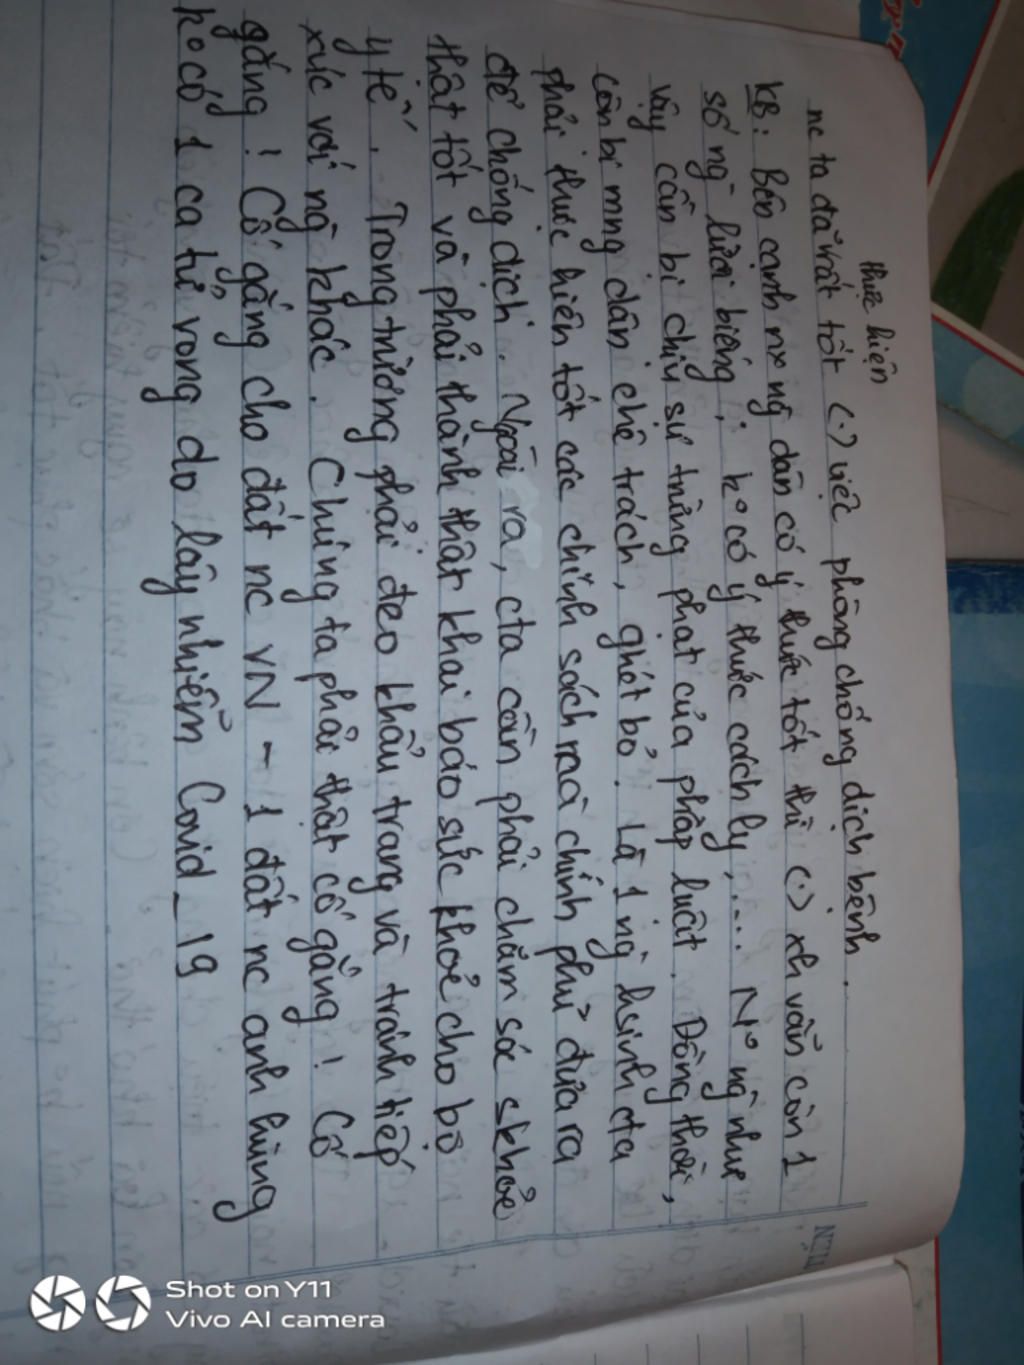 thực hiện
nc ta đã rất tốt (.) việc phòng chống dịch bệnh.
KB: Bên cạnh n° ng` dân có ý thức tốt thì (.) xh vẫn còn 1
số ng` lười biếng; k° có ý thức cách ly;... N° ng` như
vậy cần bị chịu sự trừng phạt của pháp luật. Đồng thời,
còn bị mng dân chê trách, ghét bỏ. Là 1 ng` hsinh cta
phải thực hiện tốt các chính sách mà chính phủ đưa ra
để chống dịch. Ngoài ra, cta cần phải chăm sóc skhỏe
thật tốt và phải thành thật khai báo sức khỏe cho bộ
y tế. Trong trường phải đeo khẩu trang và tránh tiếp
xúc với ng` khác. Chúng ta phải thật cố gắng! Cố
gắng! Cố gắng cho đất nc VN - 1 đất nc anh hùng
k° có 1 ca tử vong do lây nhiễm Covid_19
Shot on Y11
Vivo AI camera